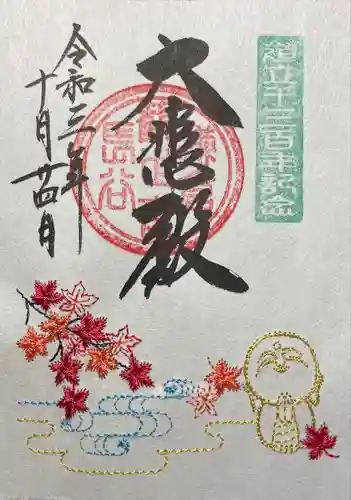 創立千三百年記念
大悲殿
令和三年
十月廿四日
長谷